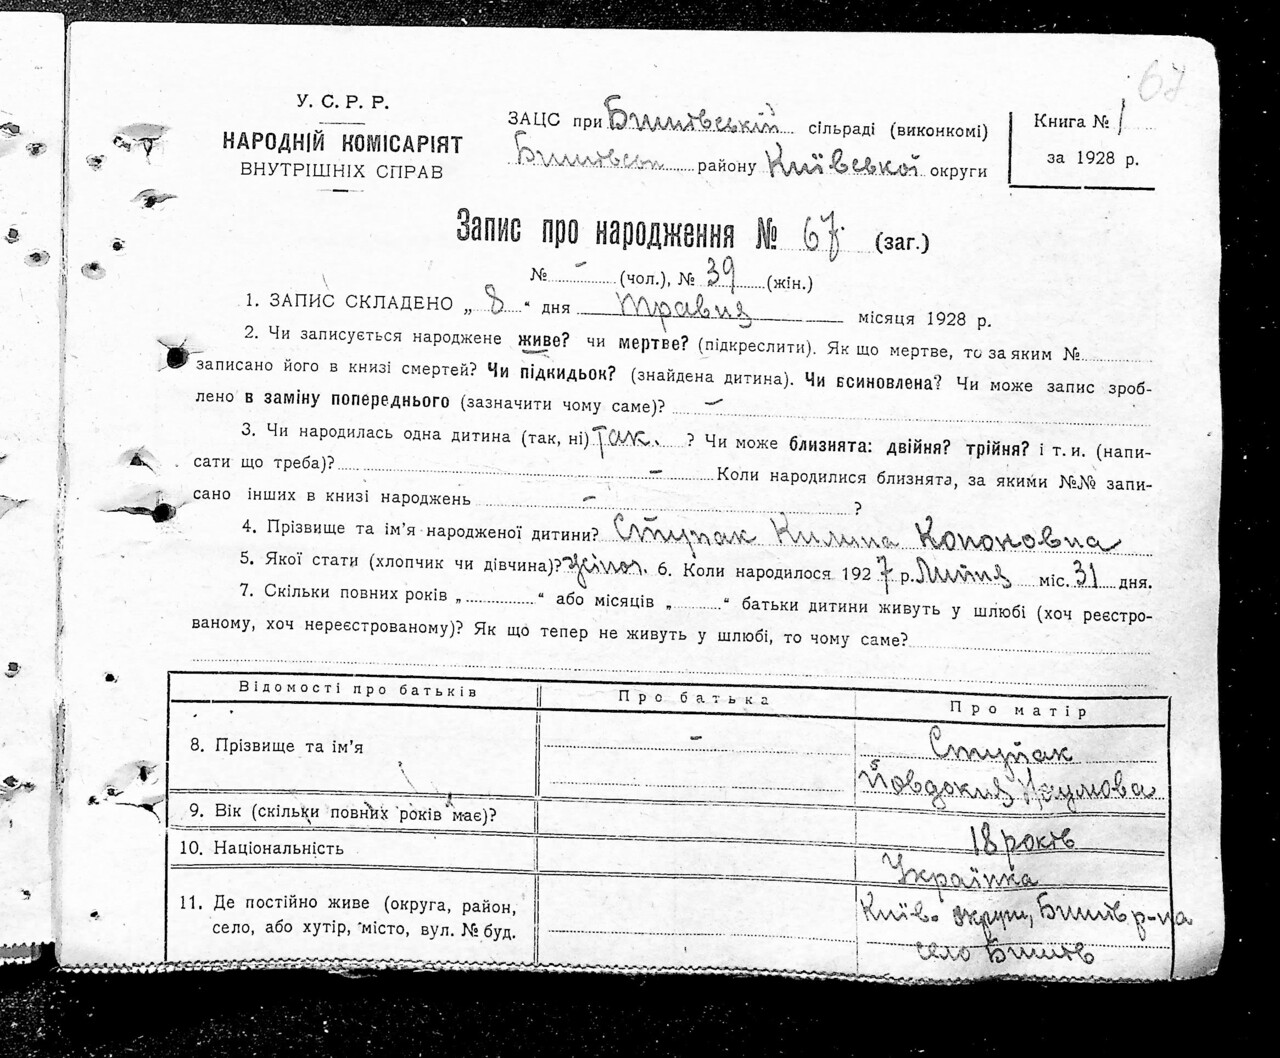 67
У. С. Р. Р.
НАРОДНІЙ КОМІСАРІЯТ
ВНУТРІШНІХ СПРАВ
ЗАЦС при Бишівській сільраді (виконкомі)
Бишівськ району Київської округи
Книга № 1
за 1928 р.
Запис про народження № 67. (заг.)
№ - (чол.), № 39 (жін.)
1. ЗАПИС СКЛАДЕНО „ 8 “ дня травня місяця 1928 р.
2. Чи записується народжене живе? чи мертве? (підкреслити). Як що мертве, то за яким №
записано його в книзі смертей? Чи підкидьок? (знайдена дитина). Чи всиновлена? Чи може запис зроб-
лено в заміну попереднього (зазначити чому саме)? -
3. Чи народилась одна дитина (так, ні) так. ? Чи може близнята: двійня? трійня? і т. и. (напи-
сати що треба)? - Коли народилися близнята, за якими №№ запи-
сано інших в книзі народжень - ?
4. Прізвище та ім’я народженої дитини? Ступак Килина Кононовна
5. Якої стати (хлопчик чи дівчина)? жіноч. 6. Коли народилося 1927 р. Липня міс. 31 дня.
7. Скільки повних років „ “ або місяців „ “ батьки дитини живуть у шлюбі (хоч реєстро-
ваному, хоч нереєстрованому)? Як що тепер не живуть у шлюбі, то чому саме?
Відомості про батьків Про батька Про матір
8. Прізвище та ім’я - Ступак
Йовдокия Наумова
9. Вік (скільки повних років має)? 18 років
10. Національність Українка
11. Де постійно живе (округа, район, Київ. округи, Бишів р-на
село, або хутір, місто, вул. № буд. село Бишів